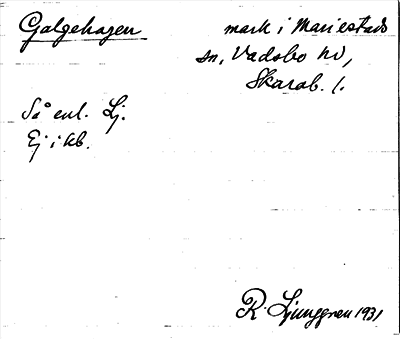 Galgehagen mark i Mariestads
sn, Vadsbo hd,
Skarab. l.
Så enl. Lj.
Ej i kb.
R. Ljunggren 1931